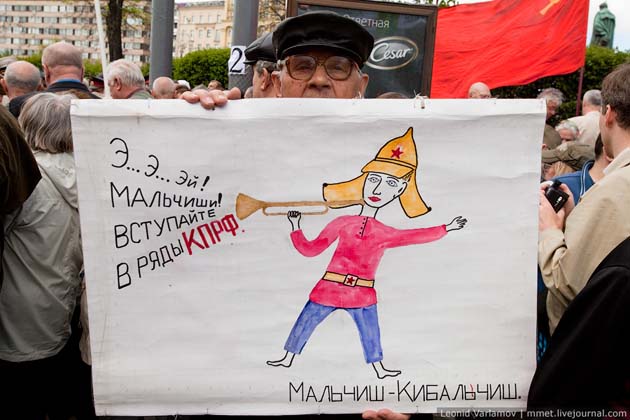 ответная
Cesar
2
Э...Э... Эй!
Мальчиши!
Вступайте
в ряды КПРФ.
Мальчиш-Кибальчиш.
Leonid Varlamov | mmet.livejournal.com